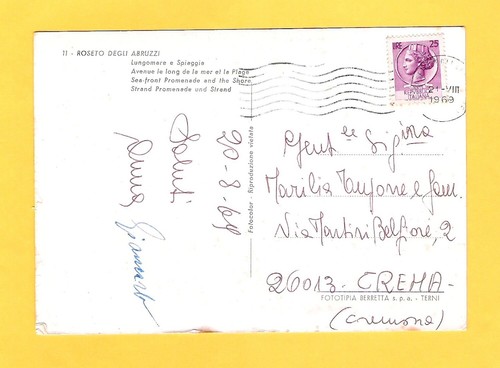 11 - ROSETO DEGLI ABRUZZI
Lungomare e Spiaggia
Avenue le long de la mer et la Plage
Sea-front Promenade and the Shore
Strand Promenade und Strand
LIRE 25
ITALIANA
21-VIII
1969
20-8-69
Saluti
Anna
Fotocolor - Riproduzione vietata
Gent.le Sig.ina
Marilia Tangone e fam.
Via Martiri Belfiore, 2
26013 - CREMA -
FOTOTIPIA BERRETTA s.p.a. - TERNI
(Cremona)